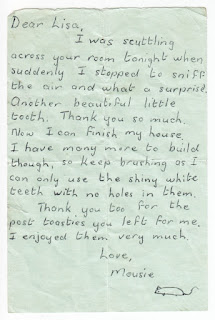 Dear Lisa,
I was scuttling
across your room tonight when
suddenly I stopped to sniff
the air and what a surprise.
Another beautiful little
tooth. Thank you so much.
Now I can finish my house.
I have many more to build
though, so keep brushing as I
can only use the shiny white
teeth with no holes in them.
Thank you too for the
post toasties you left for me.
I enjoyed them very much.
Love,
Mousie